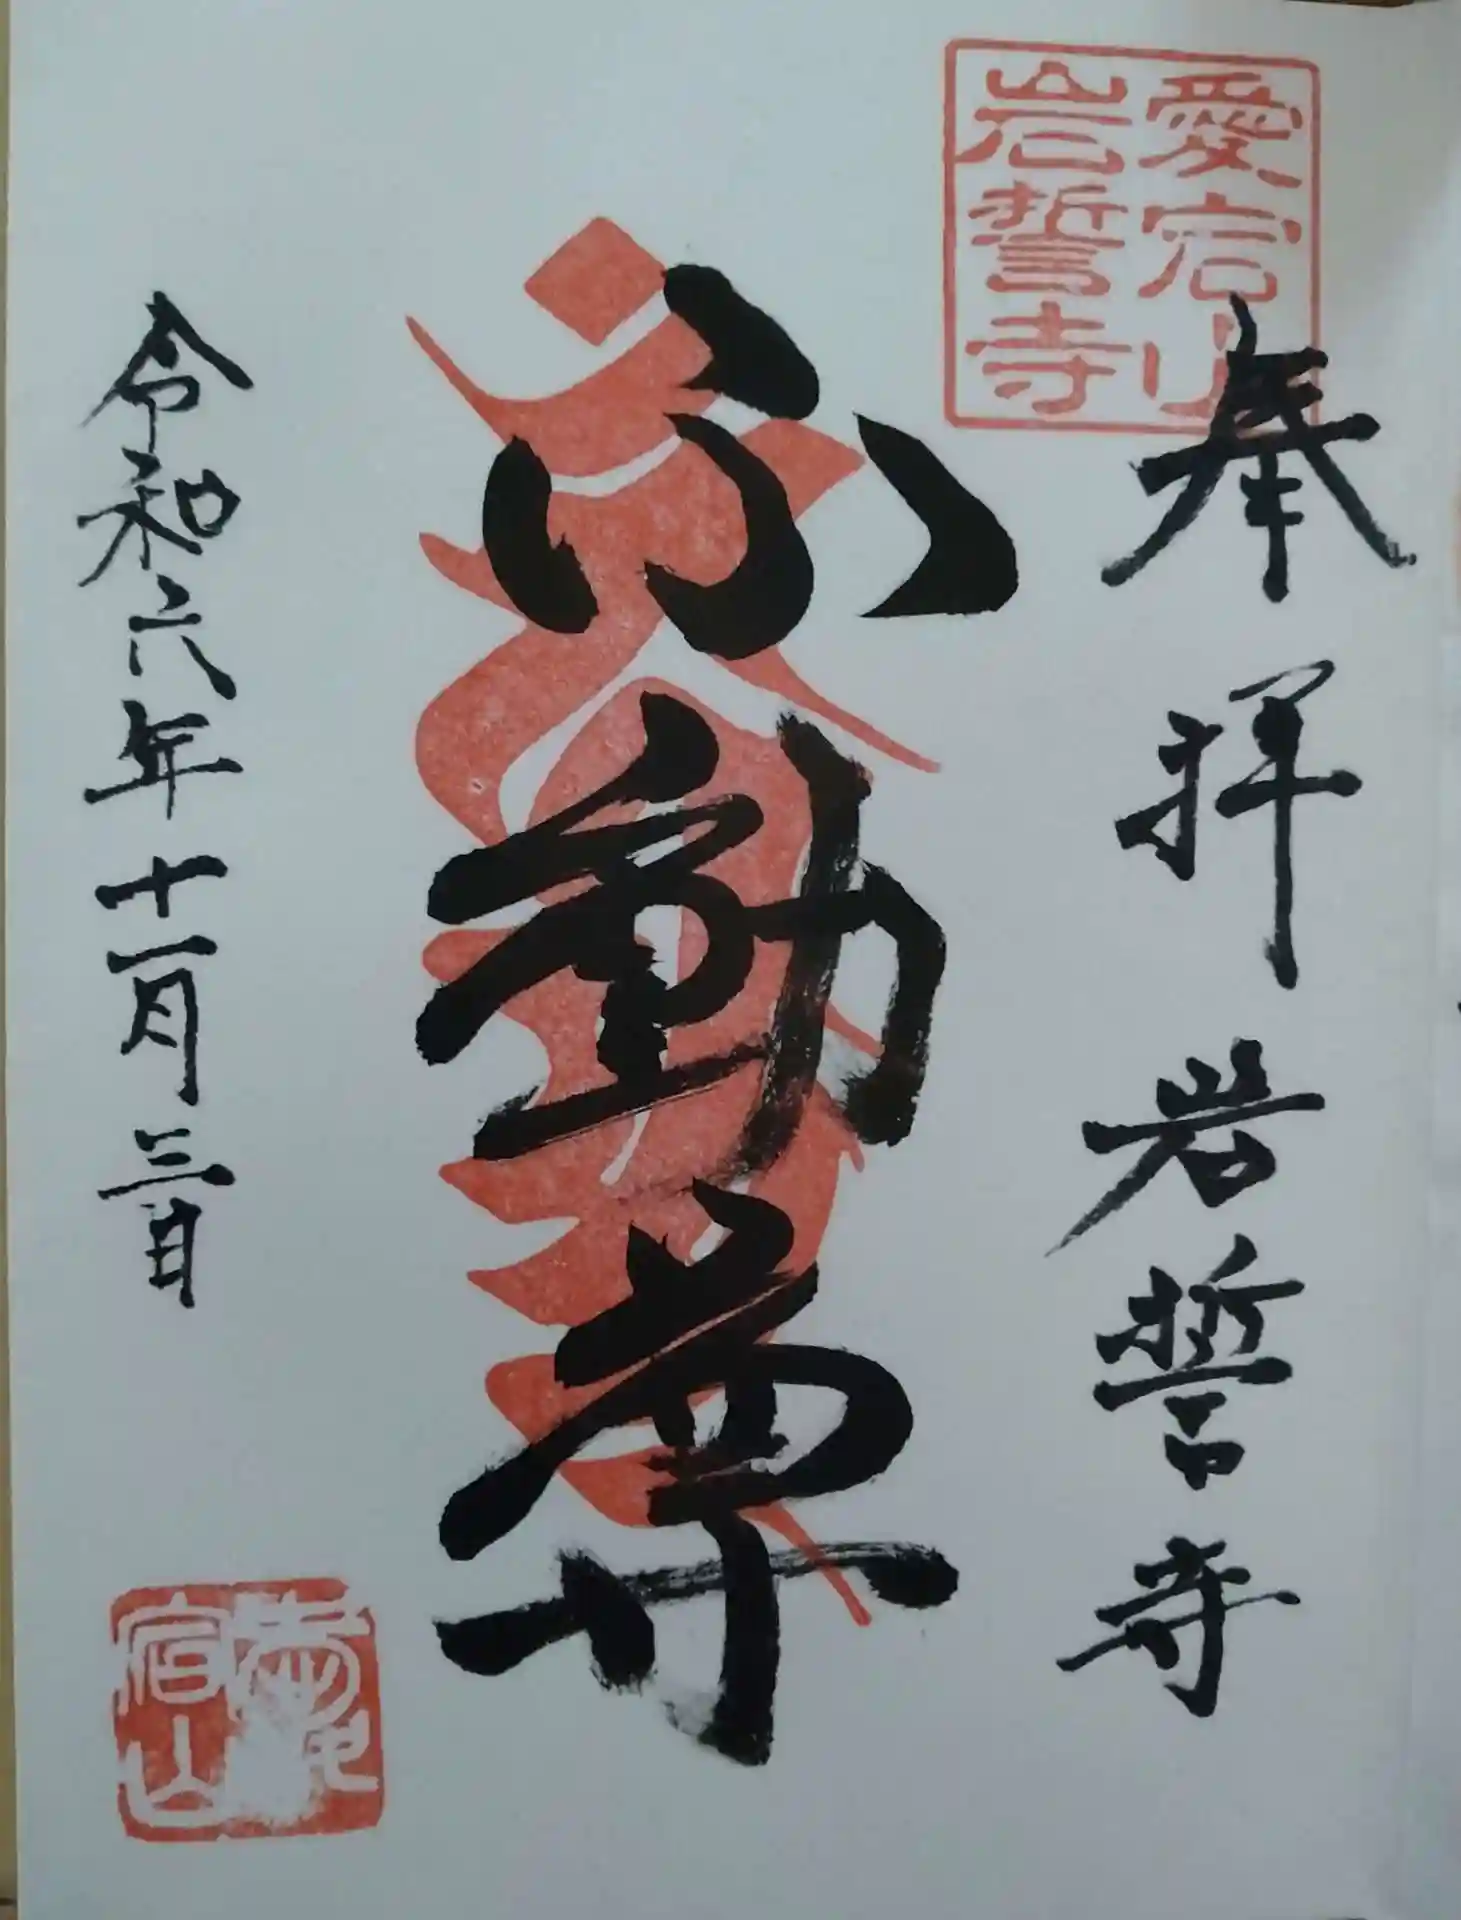 愛宕山
岩誓寺
奉拝 岩誓寺
不動尊
令和六年十一月三日
宕山